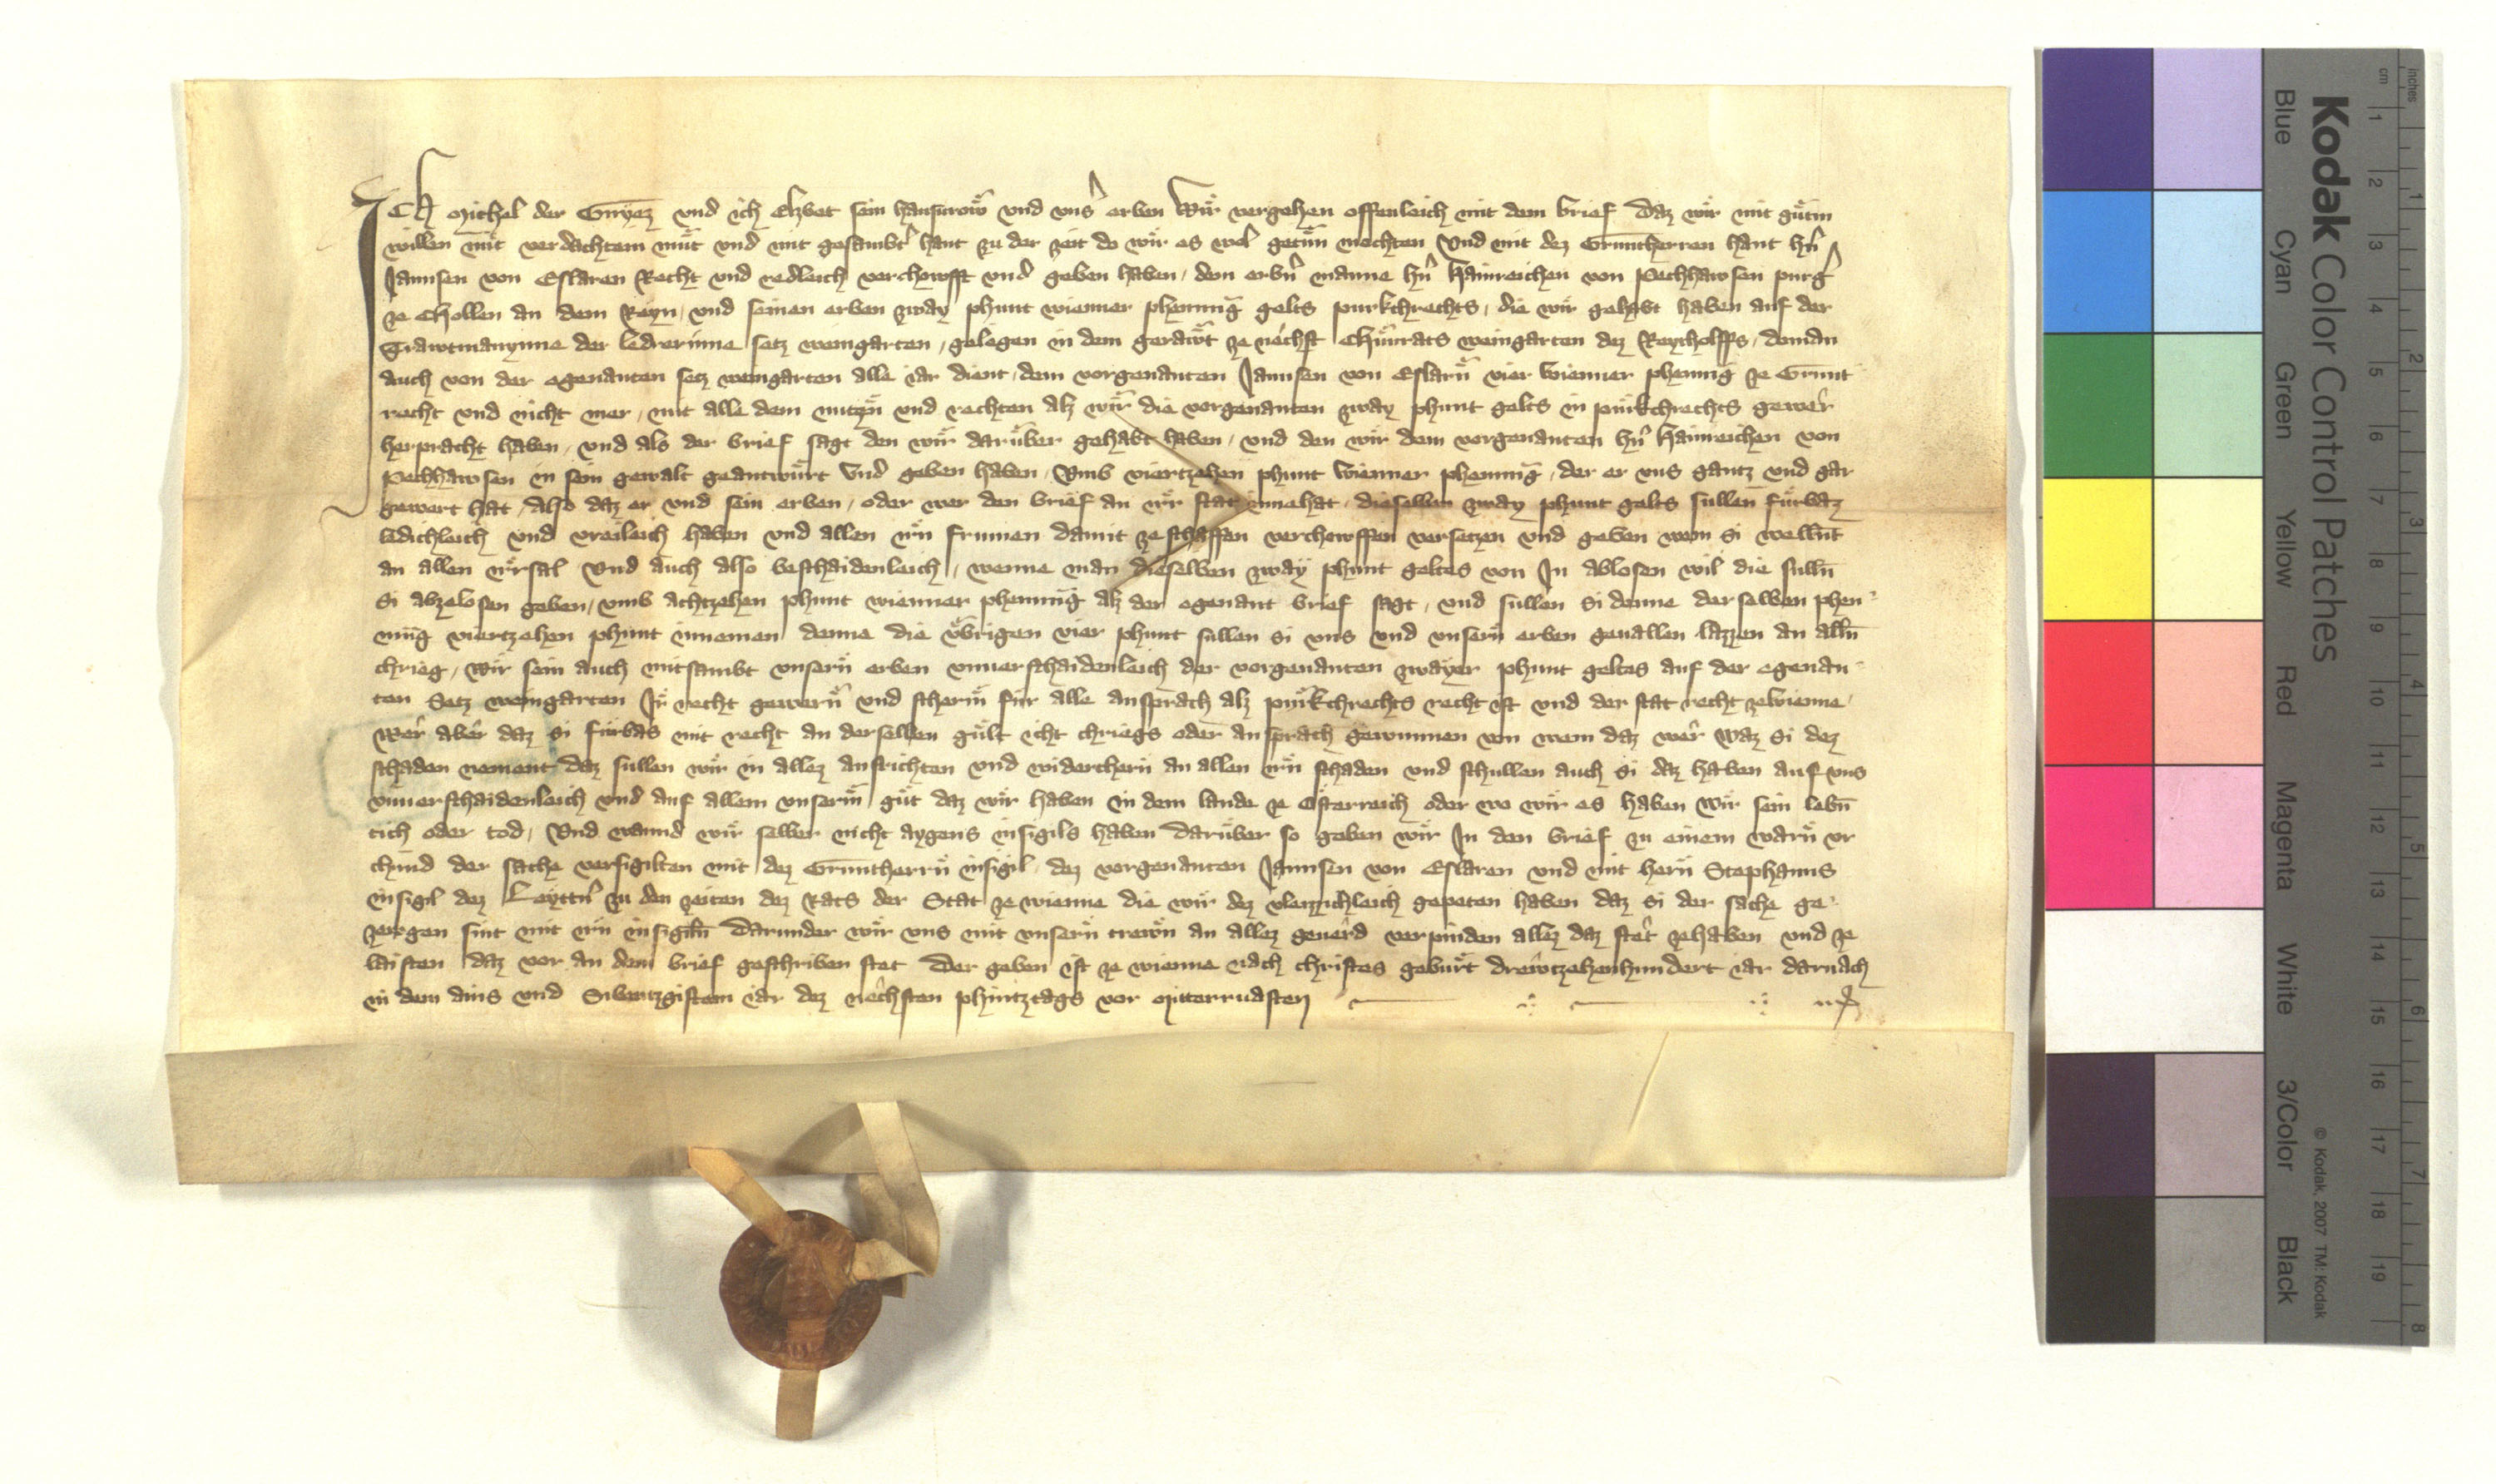 ICh Michel der Gnyez vnd ich Elzbet sein hausurow vnd vnser erben Wir vergehen offenleich mit dem brief daz wir mit gůtm
willen mit verdachtem můt vnd mit gesambter hant zu der zeit do wir es wol getůn mochten Vnd mit dez Gruntherren hant hern
Jannsen von Eslaren Recht vnd redleich verchowfft vnd geben haben, dem erbern manne hern Hainreichen von Pechhawsen purger
ze Chollen an dem Reyn, vnd seinen erben zway phunt wienner phenning gelts purkchrechts, die wir gehabt haben auf der
Trawtmanynne der ledrerinne setz weingarten, gelegen in dem gerawt ze nechst Chunrats weingarten dez Reycholffs, da man
auch von der egenanten setz weingarten alle iar dient, dem vorgenanten Jannsen von Eslarn vier wienner phennig ze Grunt
recht vnd nicht mer, mit alle dem nutzn vnd rechten alz wir die vorgenanten zway phunt gelts in purkchrechts gewer
herpracht haben, vnd als der brief sagt den wir daruber gehabt haben, vnd den wir dem vorgenanten hern Hainreichen von
Pechhawsen in sein gewalt geantwurt vnd geben haben, Vmb viertzehen phunt wienner phenning, der er vns gantz vnd gar
gewert hat, also daz er vnd sein erben, oder wer den brief an irr stat innehat, dieselben zway phunt gelts sullen furbaz
ledichleich vnd vreileich haben vnd allen irn frumen damit ze schaffen verchowffen versetzen vnd geben wem si wellent
an allen irrsal Vnd auch also beschaidenleich, wenne man dieselben zway phunt geltes von In ablosen wil die sulln
si abzelosen geben, vmb achtzehen phunt wienner phenning alz der egenant brief sagt, vnd sullen si denne derselben phen
ning viertzehen phunt innemen denne die vbrigen vier phunt sullen si vns vnd vnsern erben geuallen lazzen an alln
chrieg, Wir sein auch mitsambt vnsern erben vnuerschaidenleich der vorgenanten zwayer phunt geltes auf der egenan
ten Setz weingarten Ir recht gewern vnd scherm fur alle ansprach alz purkchrechts recht ist vnd der stat recht ze wienne,
Wer aber daz si furbas mit recht an derselben gult icht chriegs oder ansprach gewunnen von wem daz wer waz si dez
schaden nement daz sullen wir in allez ausrichten vnd widerchern an allen irn schaden vnd schullen auch si daz haben auf vns
vnuerschaidenleich vnd auf allem vnserm gůt daz wir haben in dem lande ze Osterreich oder wo wir es haben wir sein lebn
tich oder tod, Vnd wannd wir selber nicht aygens insigils haben daruber so geben wir In den brief zu einem warn vr
chund der sache versigilten mit dez Gruntherrn insigil, dez vorgenanten Jannsen von Eslaren vnd mit hern Stephanns
insigil dez Leyttner zu den zeiten dez Rats der Stat ze wienne die wir dez vleizzichleich gepeten haben daz si der sache ge
zewgen sint mit irn insigiln Darunder wir vns mit vnsern trewn an allez geuerd verpinden allez daz stet ze haben vnd ze
laisten daz vor an dem brief geschriben stet Der geben ist ze wienne nach christes geburt drewtzehenhundert iar darnach
in dem ains vnd Sibentzgistem iar dez nechsten phintztags vor Mitteruasten
Kodak Color Control Patches
Blue Cyan Green Yellow Red Magenta White 3/Color Black
© Kodak, 2007 TM: Kodak
inches 1 2 3 4 5 6 7 8
cm 1 2 3 4 5 6 7 8 9 10 11 12 13 14 15 16 17 18 19